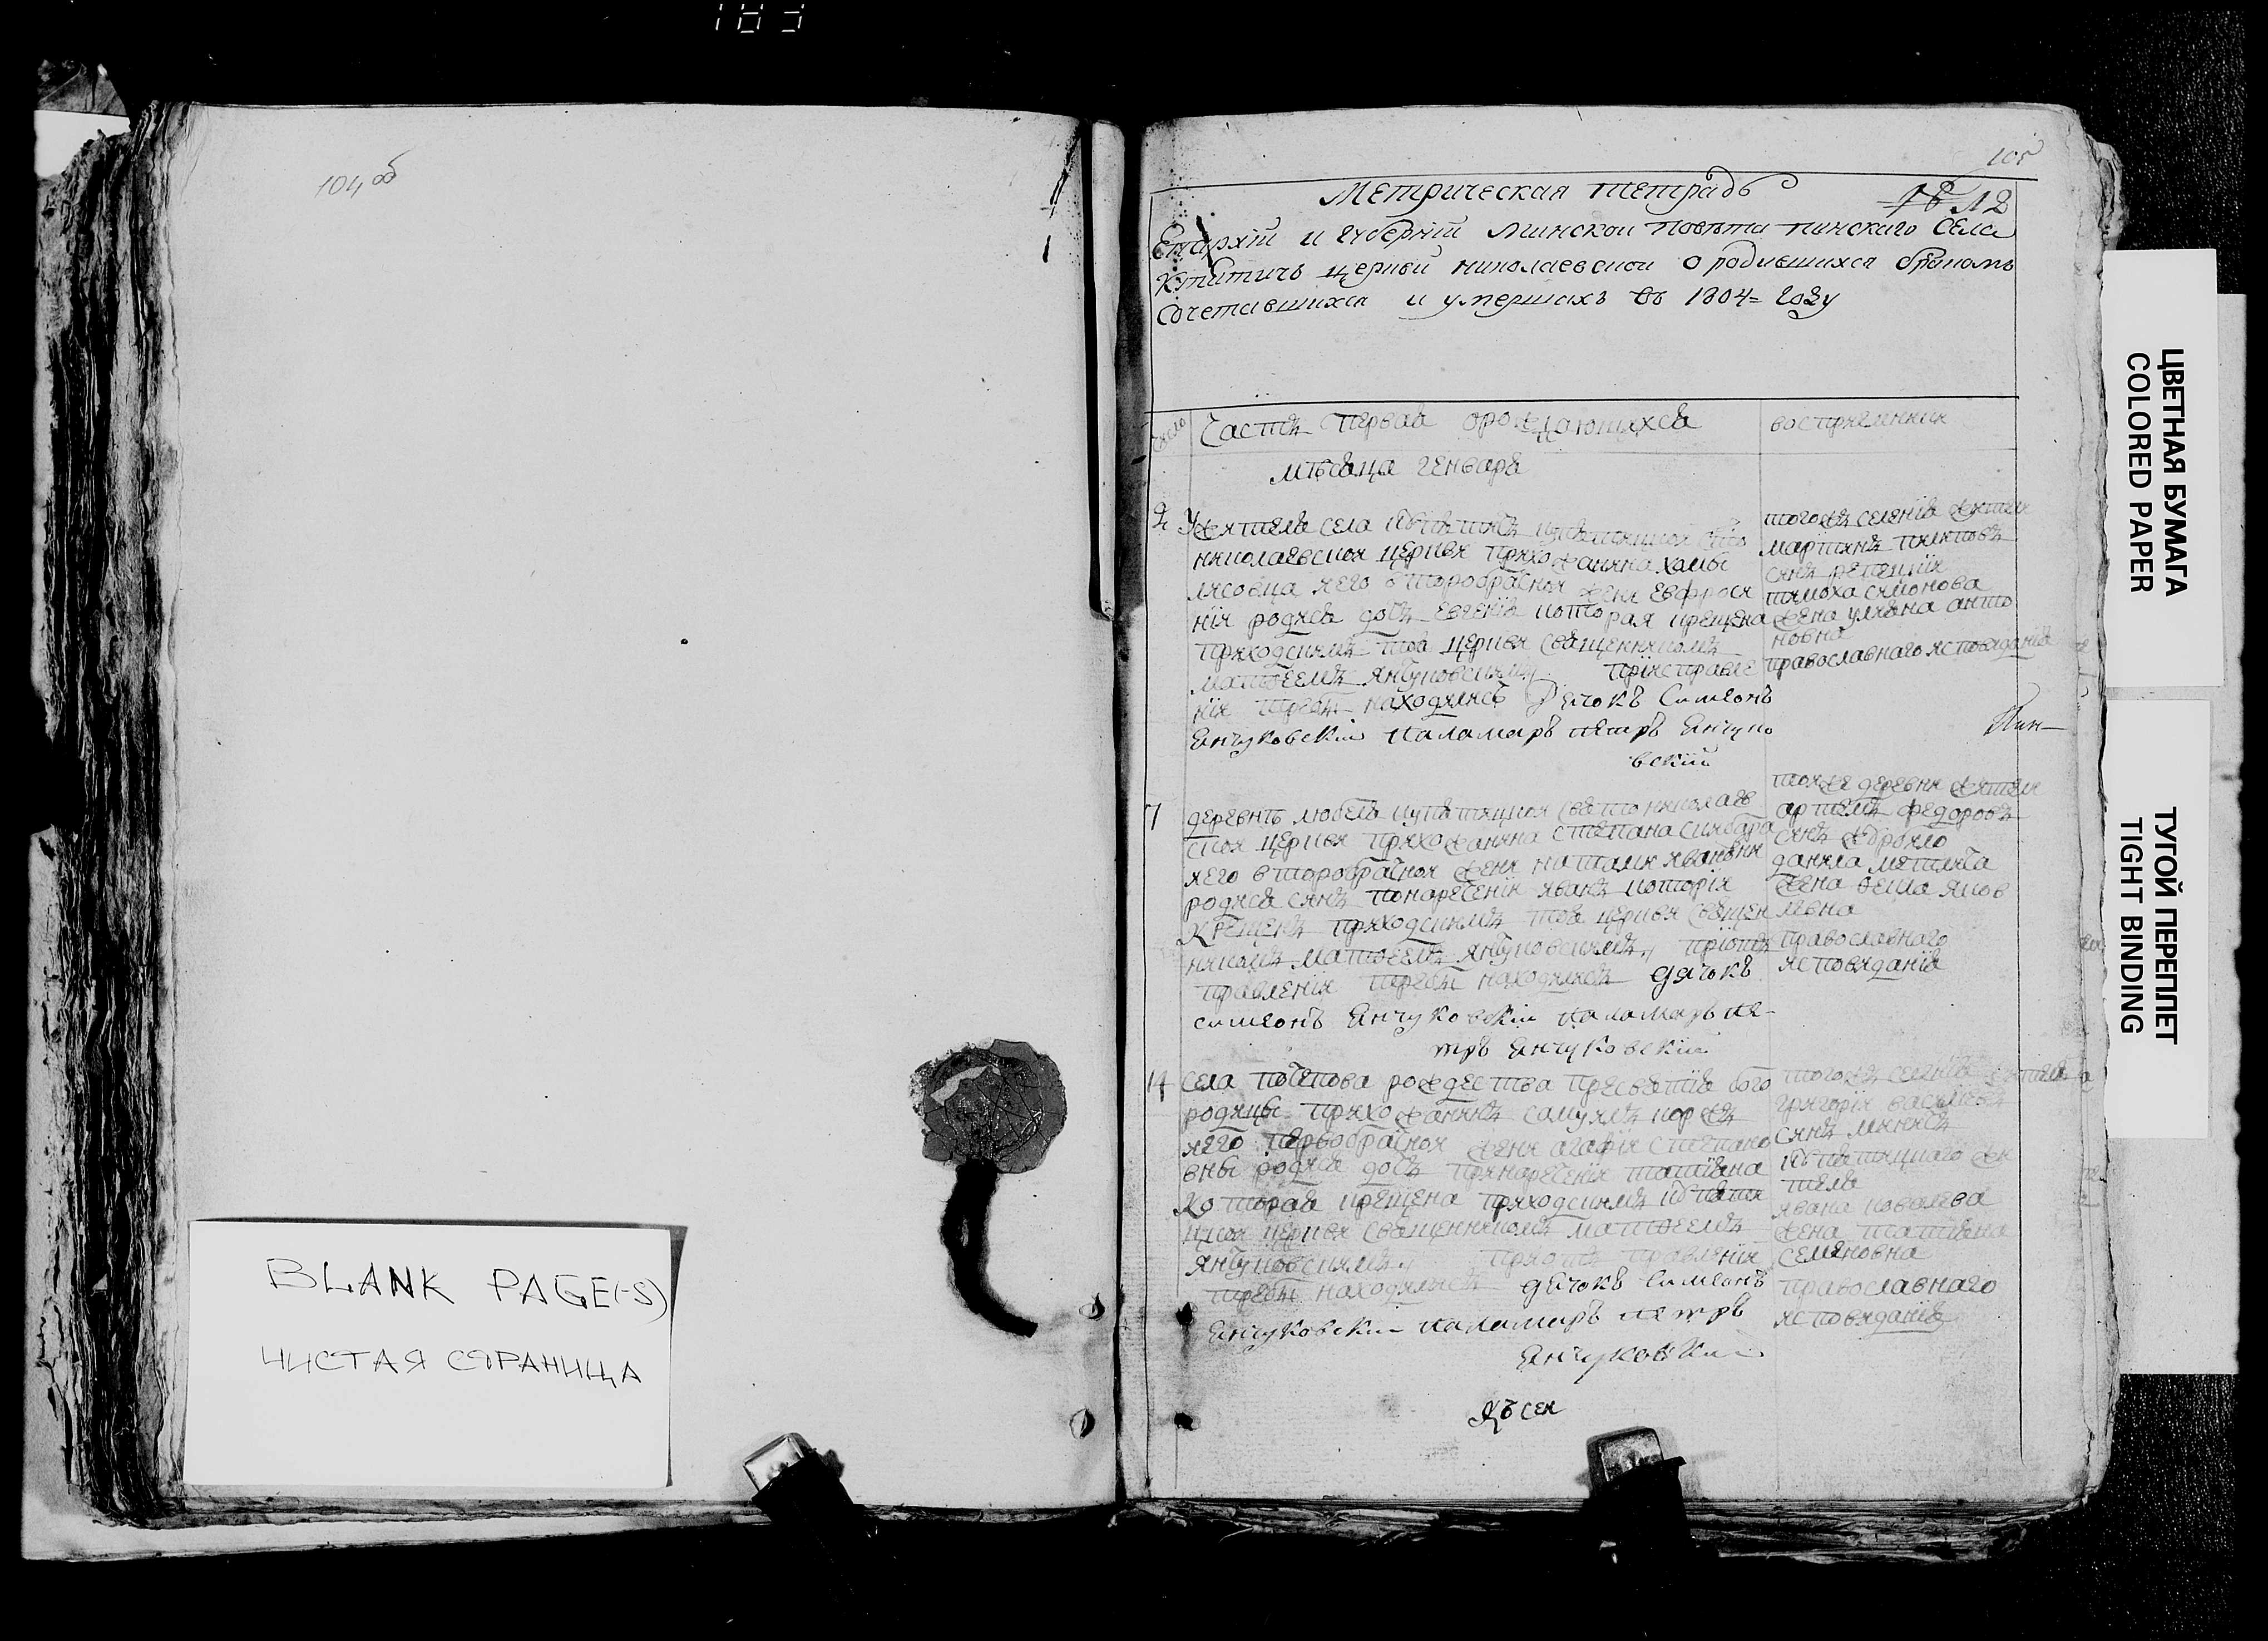 183
104 об
BLANK PAGE(-S)
ЧИСТАЯ СТРАНИЦА
105
Метрическая тетрадь
18 12
Епархїи и губернїи Минской повѣта пинскаго Села
Купятичъ церкви николаевской о родившихся бракомъ
Сочетавшихся и умершихъ въ 1804= году
Число
Часть первая о рождающихся
восприемники
мѣсяца генваря
2 Жителя села
николаевской церкви прихожанина хомы
лисовца и его второбрачной жени Евфроси
нїи родися дочь Евгенїя которая крещена
приходскимъ тоя церкви священникомъ
матфеемъ янчуковскимъ при исправле
нїи требы находились Дьчокъ Симеонъ
Янчуковскїй паламаръ петръ Янчуко
вскїй
того же селенїя жители
мартинъ
синъ
тимоха симонова
жена уляна анто
новна
православнаго исповиданїя
Пин
7 деревнѣ любеля купятицкой свято николаев
ской церкви прихожанина степана
и его второбрачной жени наталии ивановни
родися синъ по наречении иванъ которїй
крещенъ приходскимъ тоя церкви священ
никомъ матфеемъ янчуковскимъ при от
правленїи требы находились дячокъ
симеонъ Янчуковскїй паламаръ пе-
тръ Янчуковскїй
той же деревни жители
артемъ федоровъ
синъ
данила
жена феша яков
левна
православнаго
исповиданїя
14 села почапова рождества пресвятїя бого
родицы прихожанинъ самуилъ
и его первобрачной жени агафїи степано
вны родися дочь по наречении татїяна
которая крещена приходскимъ купяти
цкой церкви священникомъ матфеемъ
янчуковскимъ при от правленїи
требы находились дячокъ Симеонъ
Янчуковскїй паламаръ петръ
Янчуковскїй
того же селенїя
григорїя
синъ
купятицкаго жи
теля
ивана ковалева
жена татїяна
семеновна
православнаго
исповиданїя
ЦВЕТНАЯ БУМАГА
COLORED PAPER
ТУГОЙ ПЕРЕПЛЕТ
TIGHT BINDING